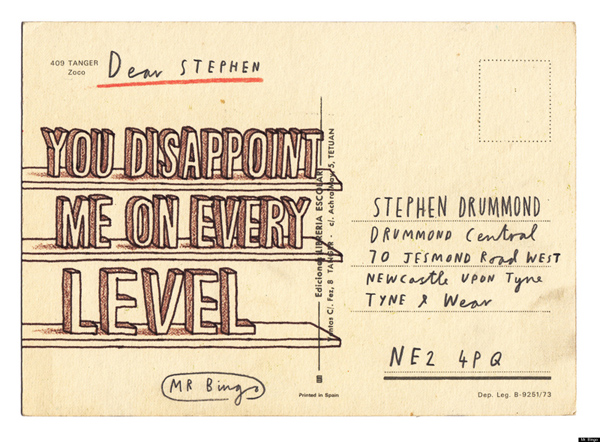 409 TANGER
Zoco
Dear STEPHEN
YOU DISAPPOINT
ME ON EVERY
LEVEL
MR Bingo
Ediciones LIBRERIA ESCOLAR
C/. Fez, 8 TANGER - c/. Achra Mayo 5, TETUAN
Printed in Spain
STEPHEN DRUMMOND
DRUMMOND Central
70 JESMOND Road WEST
NEWCastle UPON Tyne
TYNE & Wear
NE2 4PQ
Dep. Leg. B-9251/73
Mr Bingo